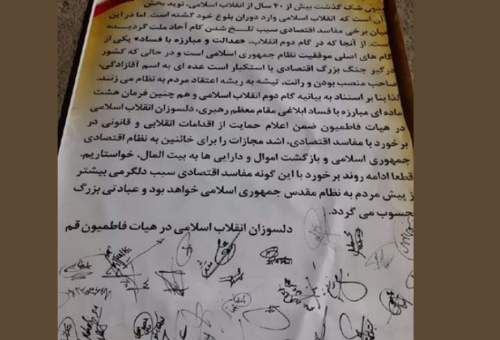 بدون شک گذشت بیش از ۴۰ سال از انقلاب اسلامی، نوید بخش
آن است که انقلاب اسلامی وارد دوران بلوغ خود گشته است. اما در این
میان برخی مفاسد اقتصادی سبب تلخ شدن کام آحاد ملت گردیده
است. از آنجا که در گام دوم انقلاب، «عدالت و مبارزه با فساد» یکی از
گام های اصلی موفقیت نظام جمهوری اسلامی است و در حالی که کشور
درگیر جنگ بزرگ اقتصادی با استکبار است عده ای به اسم آقازادگی،
صاحب منصب بودن و رانت، تیشه به ریشه اعتقاد مردم به نظام می زنند.
لذا بنا بر استناد به بیانیه گام دوم انقلاب اسلامی و هم چنین فرمان هشت
ماده ای مبارزه با فساد ابلاغی مقام معظم رهبری، دلسوزان انقلاب اسلامی
در هیات فاطمیون ضمن اعلام حمایت از اقدامات انقلابی و قانونی در
برخورد با مفاسد اقتصادی، اشد مجازات را برای خائنین به نظام اقتصادی
جمهوری اسلامی و بازگشت اموال و دارایی ها به بیت المال، خواستاریم.
قطعا ادامه روند برخورد با این گونه مفاسد اقتصادی سبب دلگرمی بیشتر
از پیش مردم به نظام مقدس جمهوری اسلامی خواهد بود و عبادتی بزرگ
محسوب می گردد.
دلسوزان انقلاب اسلامی در هیات فاطمیون قم